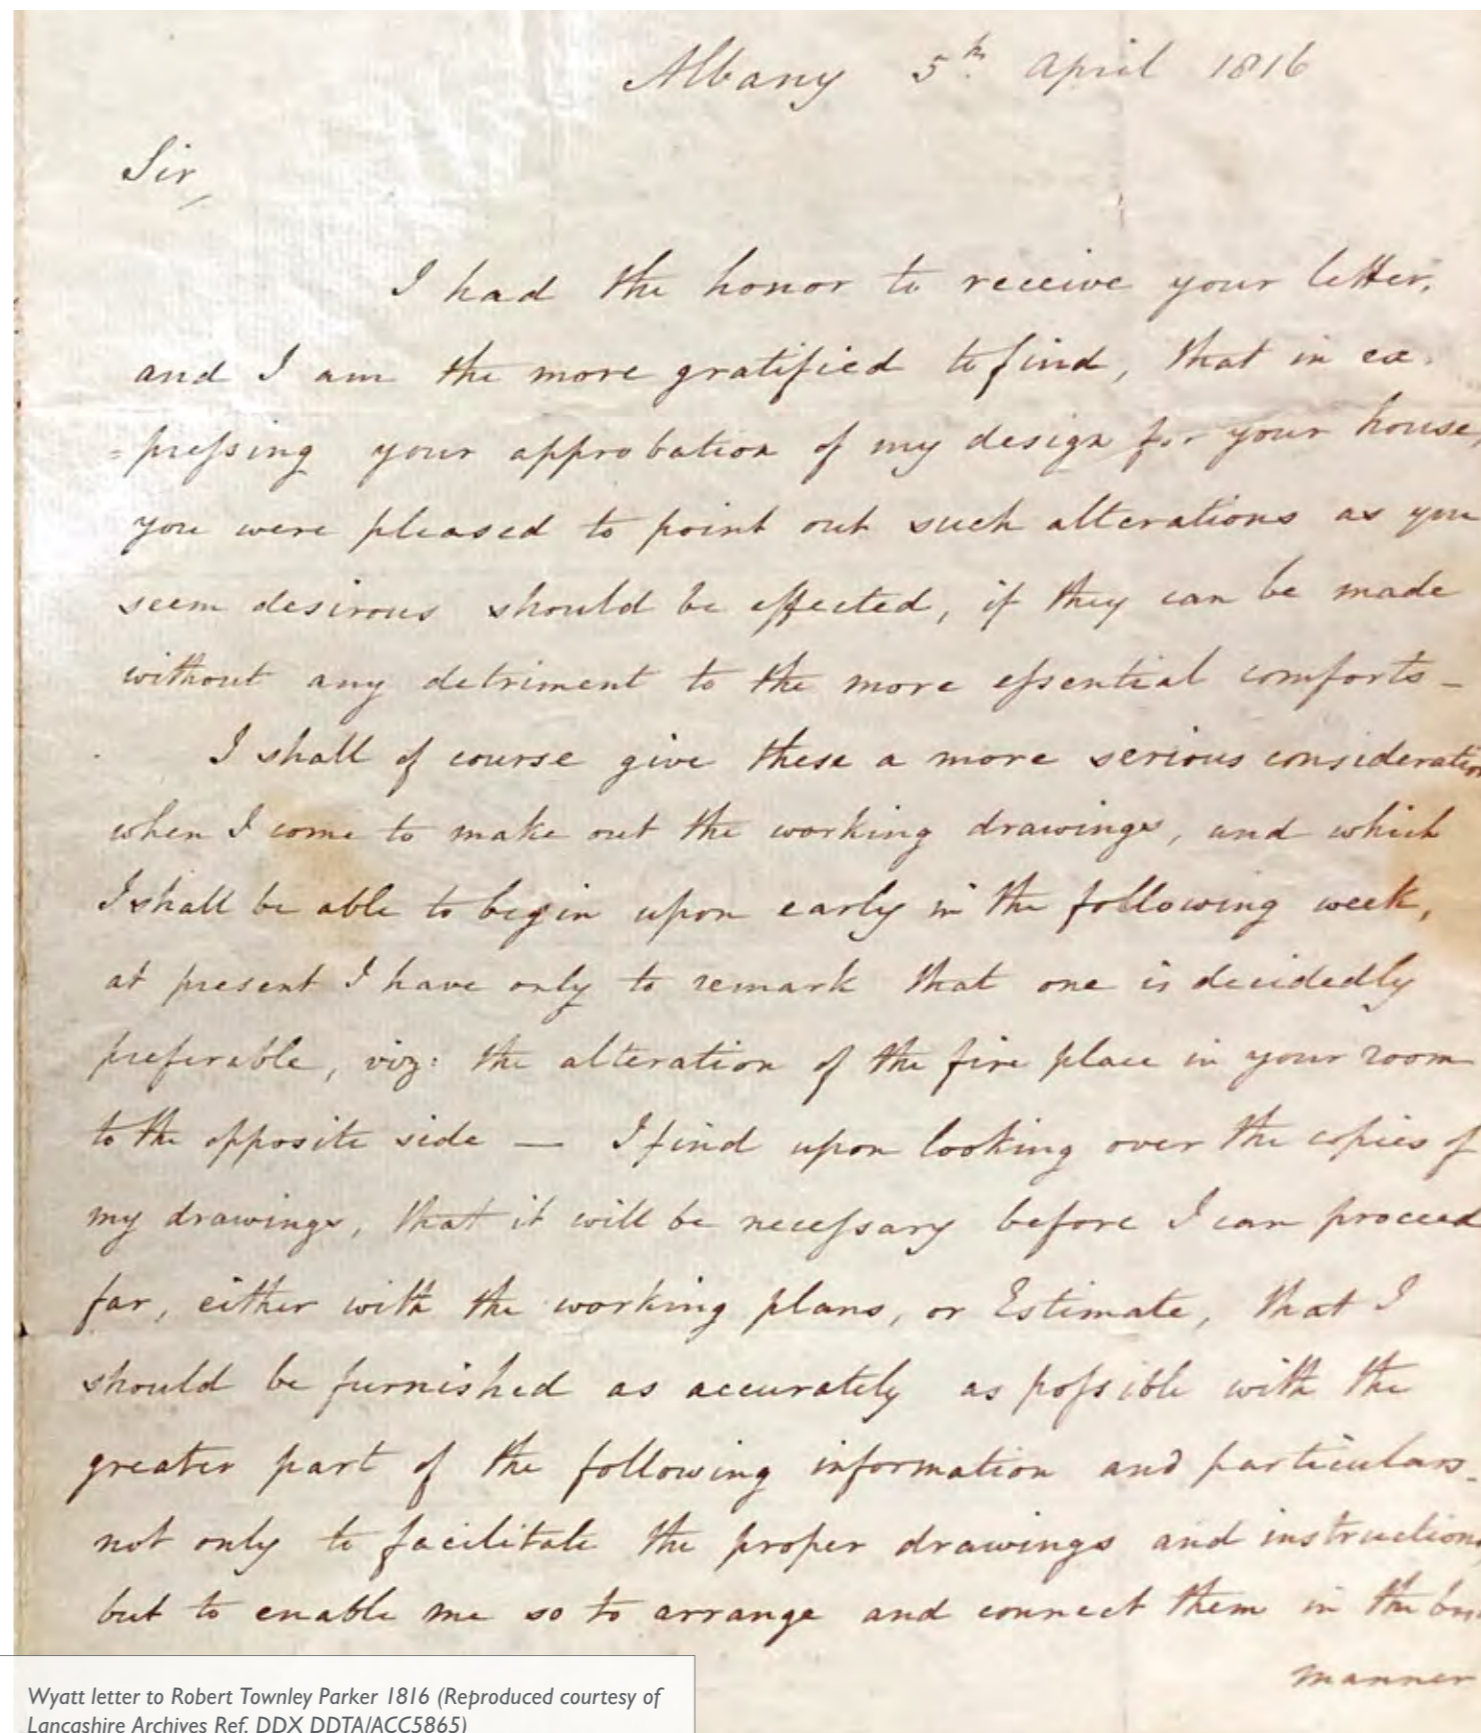 Albany 5th. April 1816
Sir,
I had the honor to receive your letter,
and I am the more gratified to find, that in ex-
=pressing your approbation of my design for your house,
you were pleased to point out such alterations as you
seem desirous should be effected, if they can be made
without any detriment to the more essential comforts –
I shall of course give these a more serious consideration
when I come to make out the working drawings, and which
I shall be able to begin upon early in the following week,
at present I have only to remark that one is decidedly
preferable, viz: the alteration of the fire place in your room
to the opposite side — I find upon looking over the copies of
my drawings, that it will be necessary before I can proceed
far, either with the working plans, or Estimate, that I
should be furnished as accurately as possible with the
greater part of the following information and particulars –
not only to facilitate the proper drawings and instructions
but to enable me so to arrange and connect them in the
manner
Wyatt letter to Robert Townley Parker 1816 (Reproduced courtesy of
Lancashire Archives Ref. DDX DDTA/ACC5865)